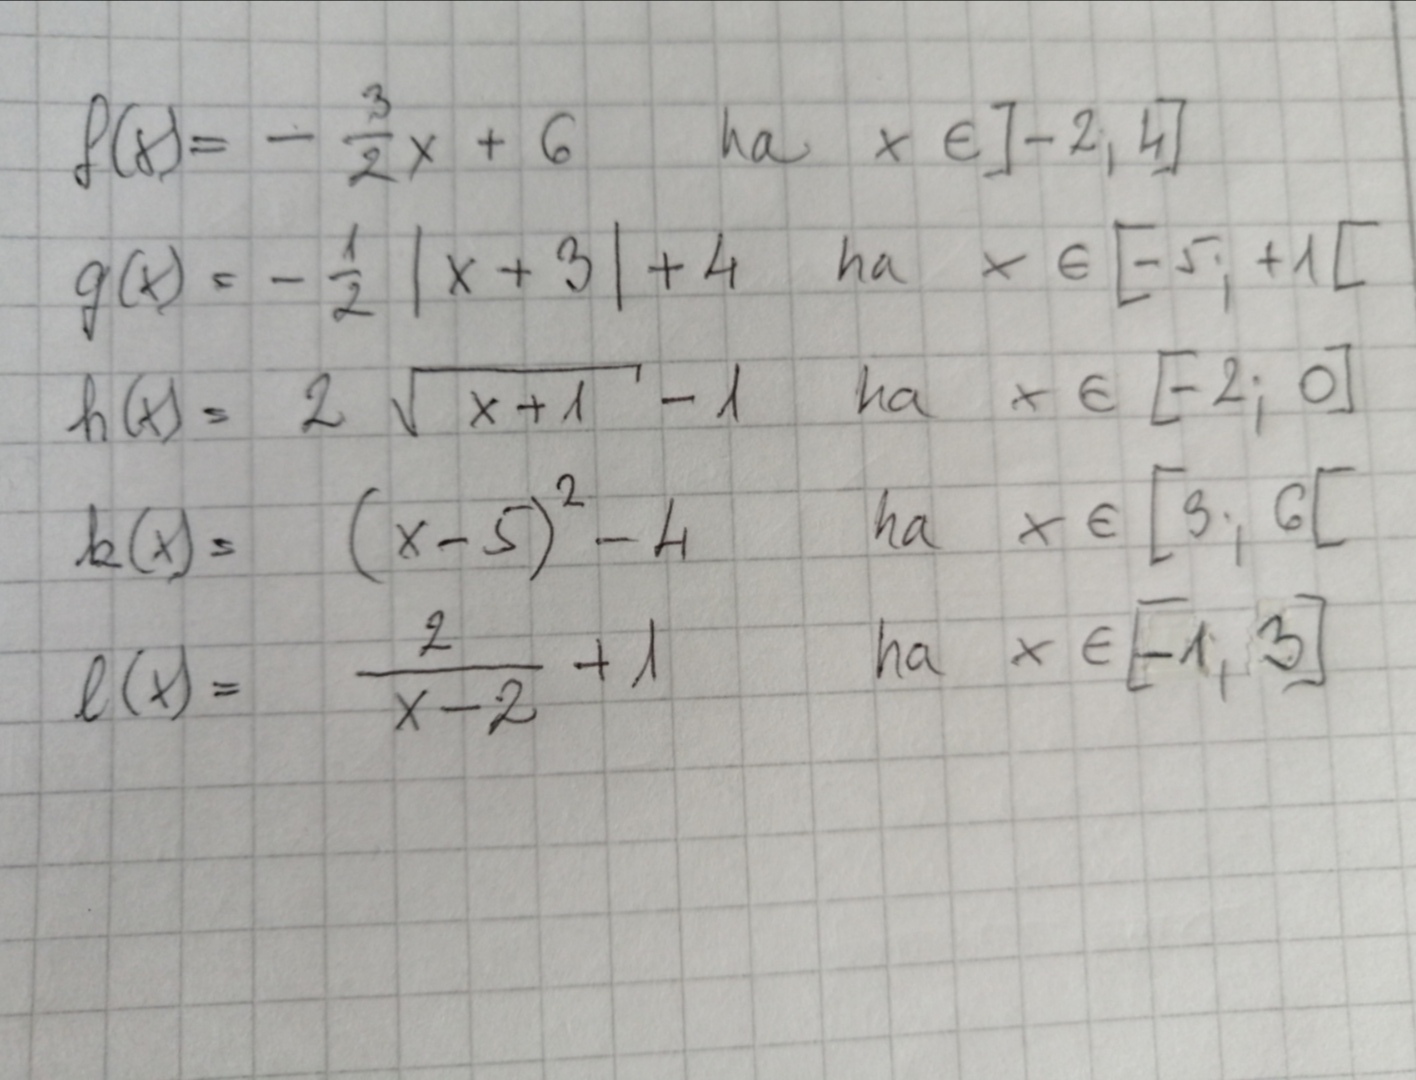 f(x) = - 3/2 x + 6 ha x ∈ ]-2; 4]
g(x) = - 1/2 |x + 3| + 4 ha x ∈ [-5; +1[
h(x) = 2 √(x+1) - 1 ha x ∈ [-2; 0]
k(x) = (x-5)² - 4 ha x ∈ [3; 6[
l(x) = 2/(x-2) + 1 ha x ∈ [-1; 3]